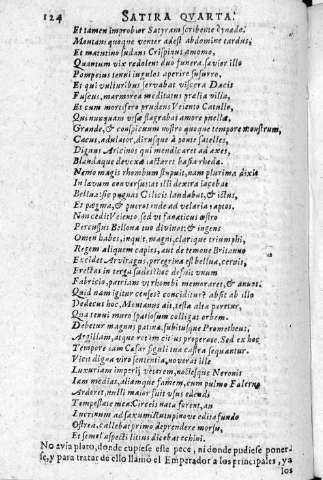 124 SATIRA QVARTA.
Et tamen improbior Satyram scribente cynædo.
Montani quoque venter adest abdomine tardus,
Et matutino sudans Crispinus amomo,
Quantum vix redolent duo funera. sævior illo
Pompeius tenui iugulos aperire susurro,
Et qui vulturibus servabat viscera Dacis
Fuscus, marmorea meditatus prælia villa,
Et cum mortifero prudens Veiento Catullo,
Qui nunquam visæ flagrabat amore puellæ,
Grande, & conspicuum nostro quoque tempore monstrum,
Cæcus adulator, dirusque à ponte satelles,
Dignus Aricinos qui mendicaret ad axes,
Blandaque devexæ iactaret basia rhedæ.
Nemo magis rhombum stupuit, nam plurima dixit
In lævum conversus: at illi dextra iacebat
Bellua: sic pugnas Cilicis laudabat, & ictus,
Et pægma, & pueros inde ad velaria raptos.
Non cedit Veiento, sed vt fanaticus œstro
Percussus Bellona tuo divinat: & ingens
Omen habes, inquit, magni, clarique triumphi,
Regem aliquem capies, aut de temone Britanno
Excidet Arviragus, peregrina est bellua, cernis,
Erectas in terga sudes? hoc defuit vnum
Fabricio, patriam vt rhombi memoraret, & annos.
Quid nam igitur censes? conciditur? absit ab illo
Dedecus hoc, Montanus ait, testa alta paretur,
Qua tenui muro spatiosum colligat orbem.
Debetur magnus patinæ subitusque Prometheus,
Argillam, atque rotam citius properate. Sed ex hoc
Tempore iam Cæsar figuli tua castra sequantur.
Vicit digna viro sententia, noverat ille
Luxuriam imperij veterem, noctesque Neronis
Iam medias, aliamque famem, cum pulmo Falerno
Arderet, nulli maior fuit vsus edendi
Tempestate mea: Circeis nata forent, an
Lucrinum ad saxum Rutupinove edita fundo
Ostrea, callebat primo deprendere morsu,
Et semel aspecti littus dicebat echini.
No avia plato, donde cupiese este pece, ni donde pudiese poner-
se, y para tratar de ello llamò el Emperador a los principales, ya
los